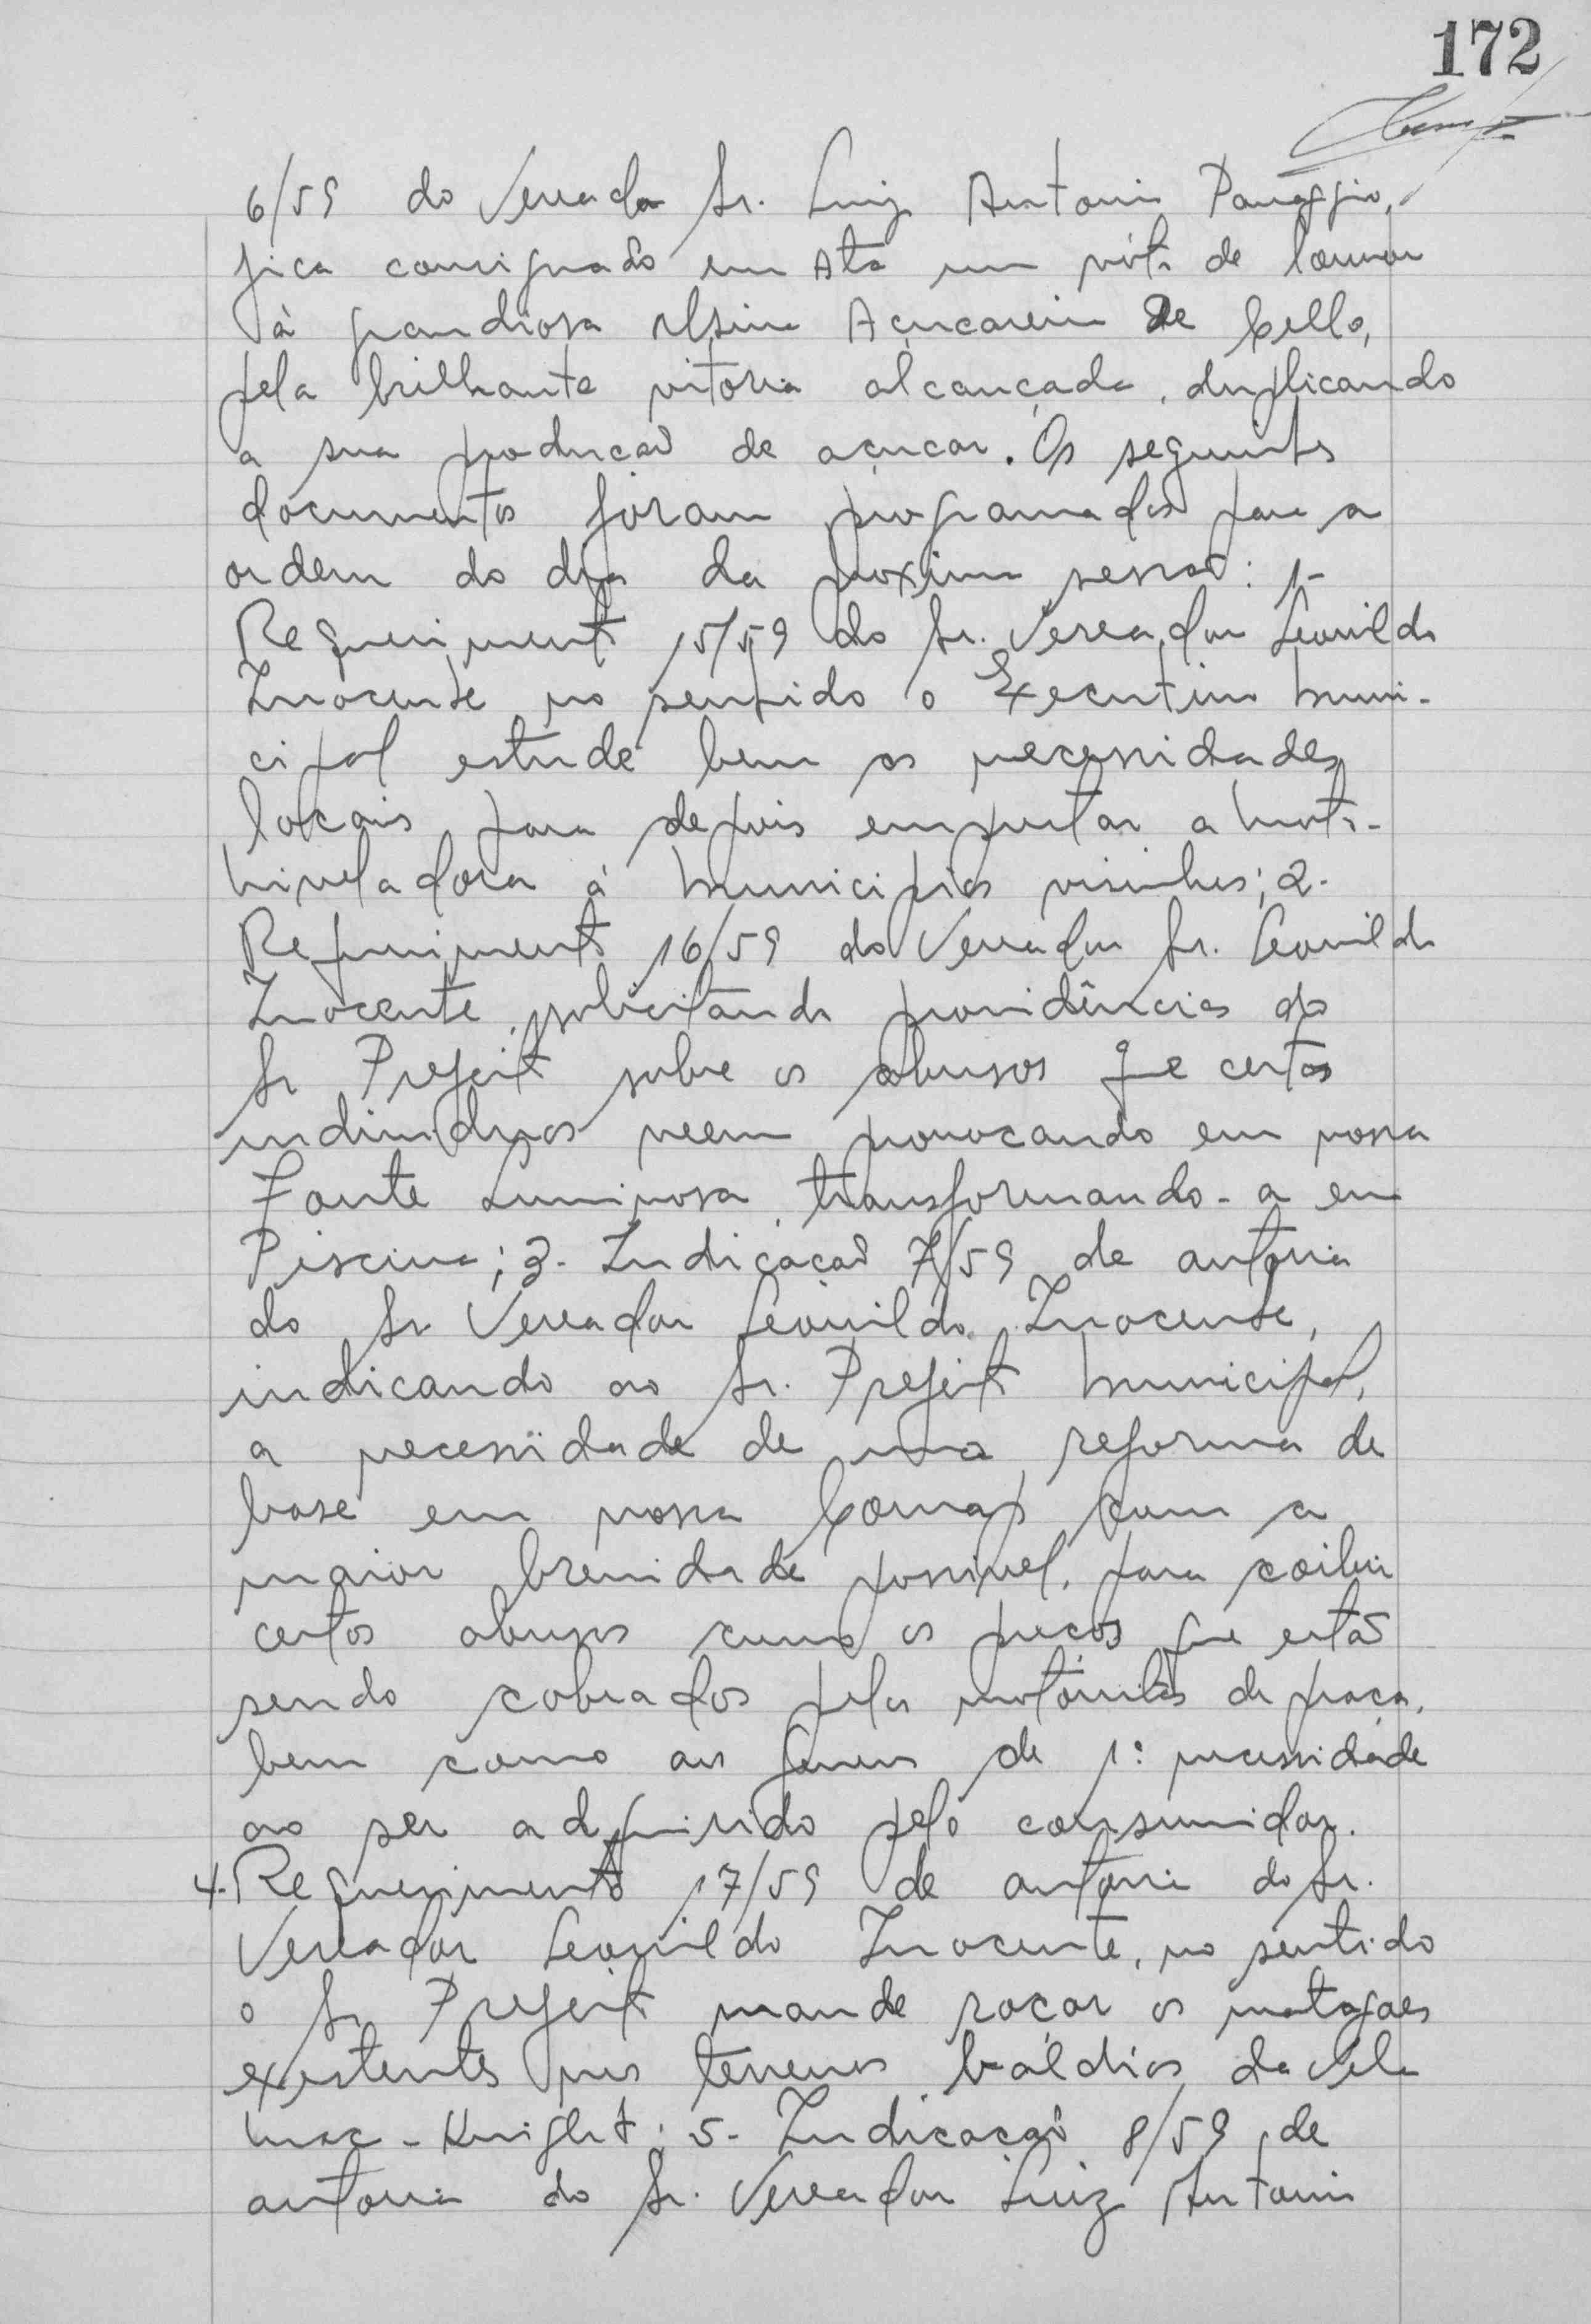 172
6/59 do Vereador Sr. Luiz Antonio Panaggio,
fica consignado em Ata um vóto de louvor
à grandiosa Usina Açucareira De Cello,
pela brilhante vitória alcançada, duplicando
a sua produção de açucar. Os seguintes
documentos fóram programados para a
ordem do dia da proxima sessão: 1-
Requerimento 15/59 do Sr. Vereador Leonildo
Inocente no sentido o Executivo Muni-
cipal estude bem as necessidades
locais para depois emprestar a Moto-
niveladora á Municipios visinhos; 2-
Requerimento 16/59 do Vereador Sr. Leonildo
Inocente, solicitando providências do
Sr Prefeito sobre os abusos que certos
individuos veem provocando em nossa
Fonte Luminosa, transformando-a em
Piscina; 3- Indicação 7/59 de autoria
do Sr Vereador Leonildo Inocente,
indicando ao Sr. Prefeito Municipal,
a necessidade de uma reforma de
base em nossa Comap com a
maior brevidade possivel, para coibir
certos abusos como os preços que estão
sendo cobrados pelos motoristas de praça,
bem como aos generos de 1ª necessidade
ao ser adquirido pelo consumidor.
4-Requerimento 17/59 de autoria do Sr.
Vereador Leonildo Inocente, no sentido
o Sr Prefeito mande roçar os matagaes
existentes nos terrenos baldios da Vila
Mac-Knight; 5- Indicação 8/59, de
autoria do Sr. Vereador Luiz Antonio